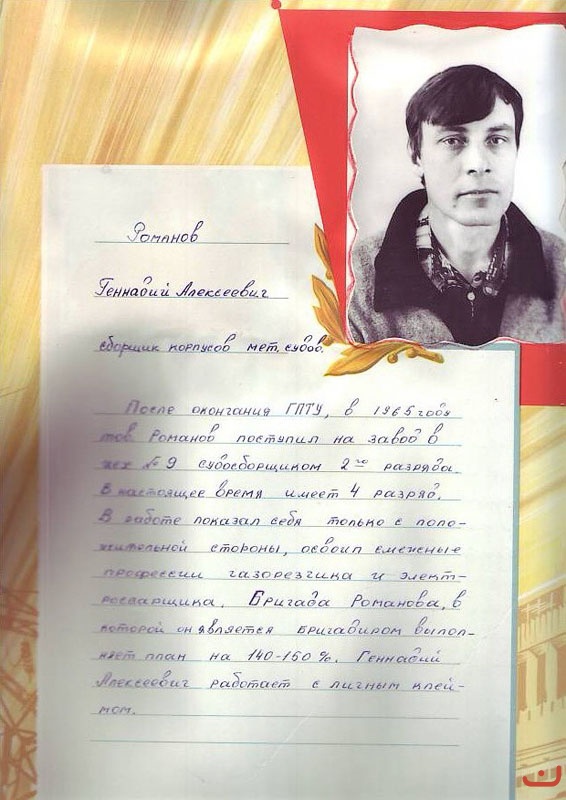 Романов
Геннадий Алексеевич
сборщик корпусов мет. судов.
После окончания ГПТУ, в 1965 году
тов. Романов поступил на завод в
цех №9 судосборщиком 2го разряда.
В настоящее время имеет 4 разряд.
В работе показал себя только с поло-
жительной стороны, освоил смежные
профессии газорезчика и элект-
росварщика. Бригада Романова, в
которой он является бригадиром выпол-
няет план на 140-150%. Геннадий
Алексеевич работает с личным клей-
мом.